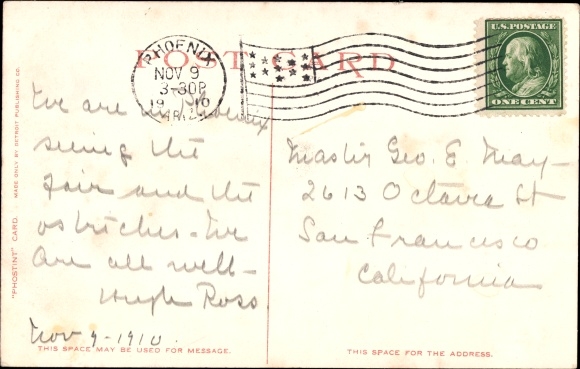 POST CARD
PHOENIX
NOV 9
3-30P
1910
ARIZ.
U.S. POSTAGE
ONE CENT
We are in Phoenix
seeing the
fair and the
ostriches - We
are all well -
Hugh Ross
Nov 9 - 1910
THIS SPACE MAY BE USED FOR MESSAGE.
"PHOSTINT" CARD. MADE ONLY BY DETROIT PUBLISHING CO.
Master Geo. E. May -
2613 Octavia St
San Francisco
California
THIS SPACE FOR THE ADDRESS.